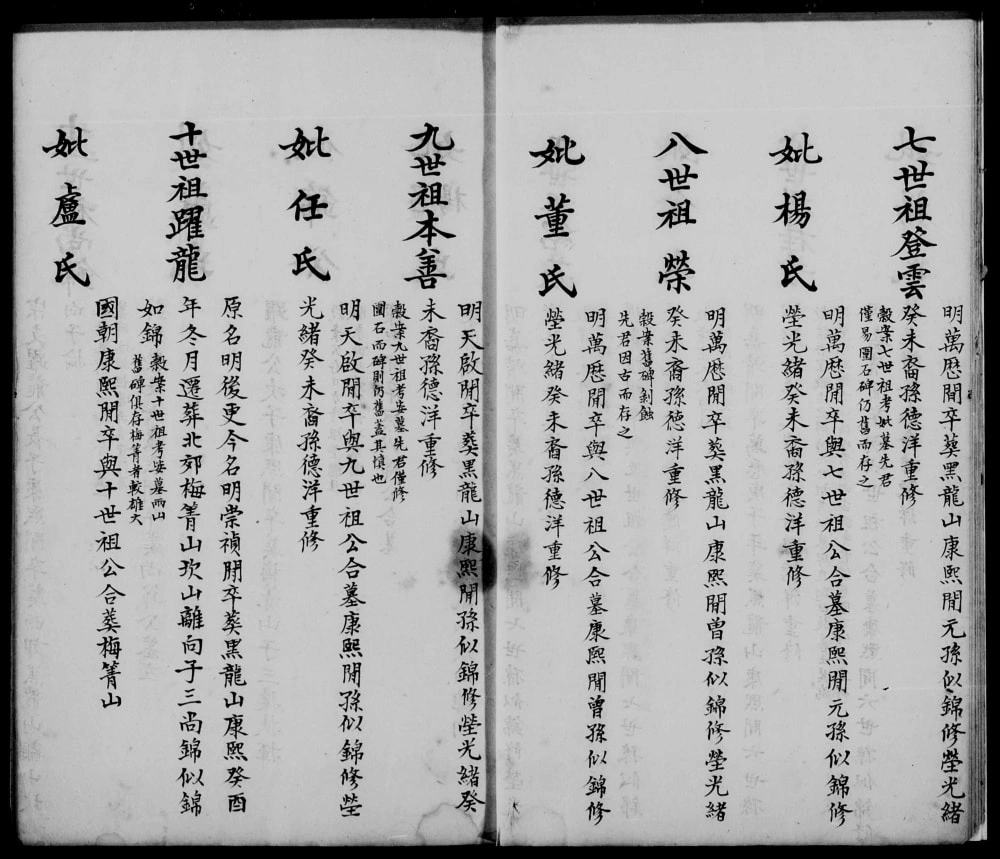 七世祖登雲
明萬曆間卒葬黑龍山康熙閒元孫似錦修塋光緒
癸未裔孫德洋重修
穀案七世祖考妣墓先君
僅易圍石碑仍舊而存之
妣楊氏
明萬曆閒卒與七世祖公合墓康熙閒元孫似錦修
塋光緒癸未裔孫德洋重修
八世祖榮
明萬曆閒卒葬黑龍山康熙閒曾孫似錦修塋光緒
癸未裔孫德洋重修
穀案舊碑剥蝕
先君因古而存之
妣董氏
明萬曆閒卒與八世祖公合墓康熙閒曾孫似錦修
塋光緒癸未裔孫德洋重修
九世祖本善
明天啟閒卒葬黑龍山康熙閒孫似錦修塋光緒癸
未裔孫德洋重修
穀案九世祖考妣墓先君僅修
圍石而碑則仍舊蓋其慎也
妣任氏
明天啟閒卒與九世祖公合墓康熙閒孫似錦修塋
光緒癸未裔孫德洋重修
十世祖躍龍
原名明後更今名明崇禎閒卒葬黑龍山康熙癸酉
年冬月遷葬北郊梅箐山坎山離向子三尚錦似錦
如錦
穀案十世祖考妣墓兩山
舊碑俱存梅箐者較雄大
妣盧氏
國朝康熙閒卒與十世祖公合葬梅箐山